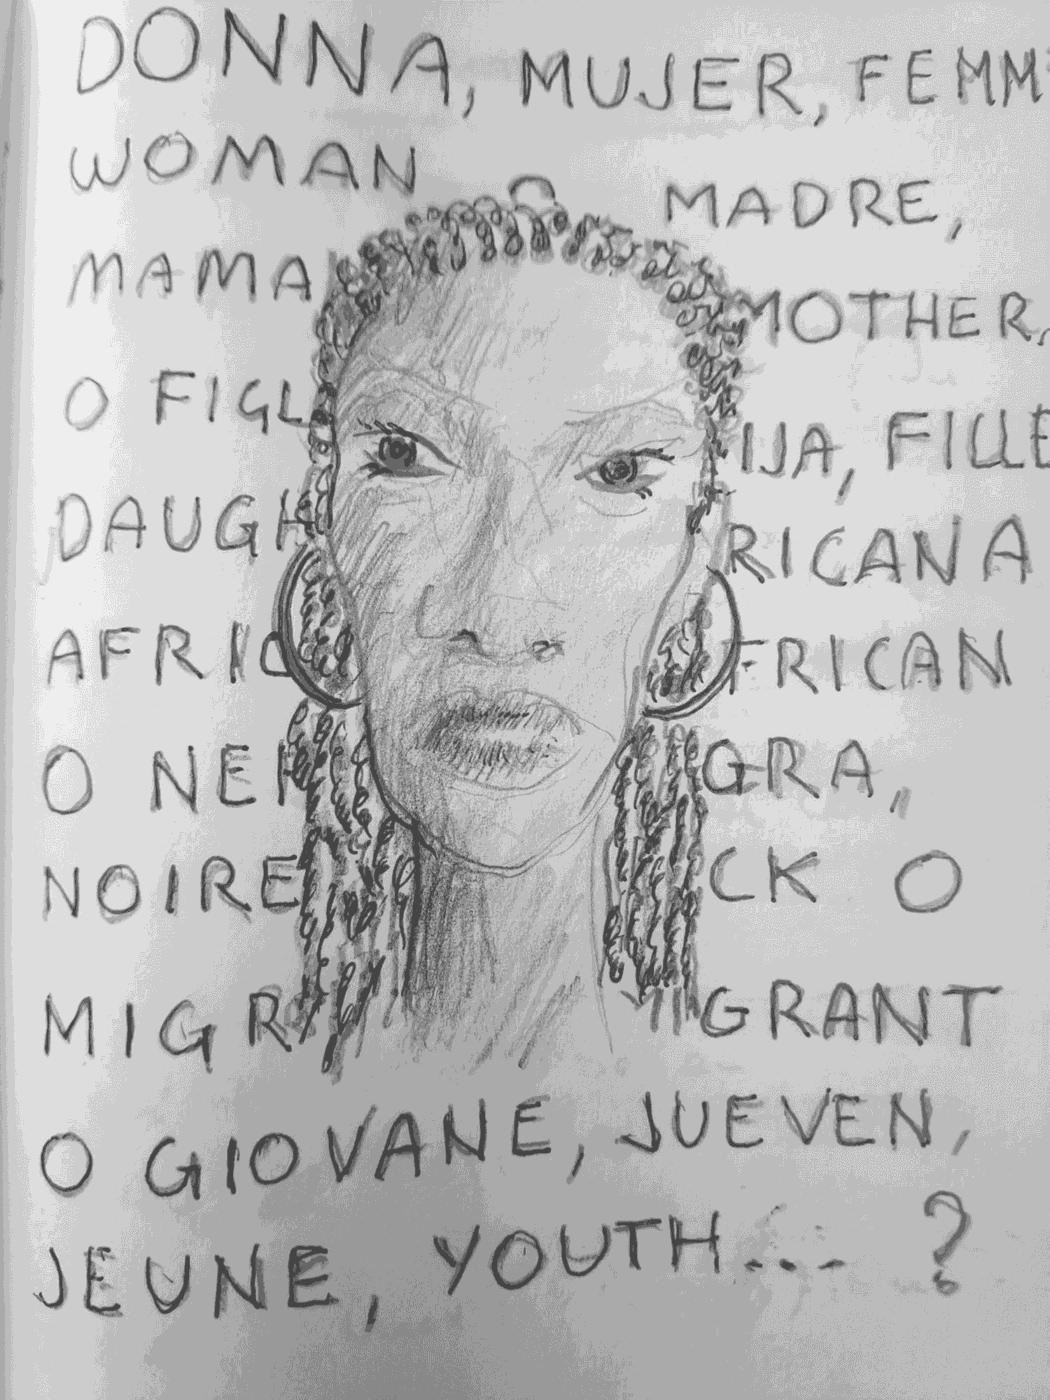 DONNA, MUJER, FEMM
WOMAN MADRE,
MAMA MOTHER,
O FIGL IJA, FILLE
DAUGH RICANA
AFRIC FRICAN
O NER GRA,
NOIRE CK O
MIGR GRANT
O GIOVANE, JUEVEN,
JEUNE, YOUTH... ?